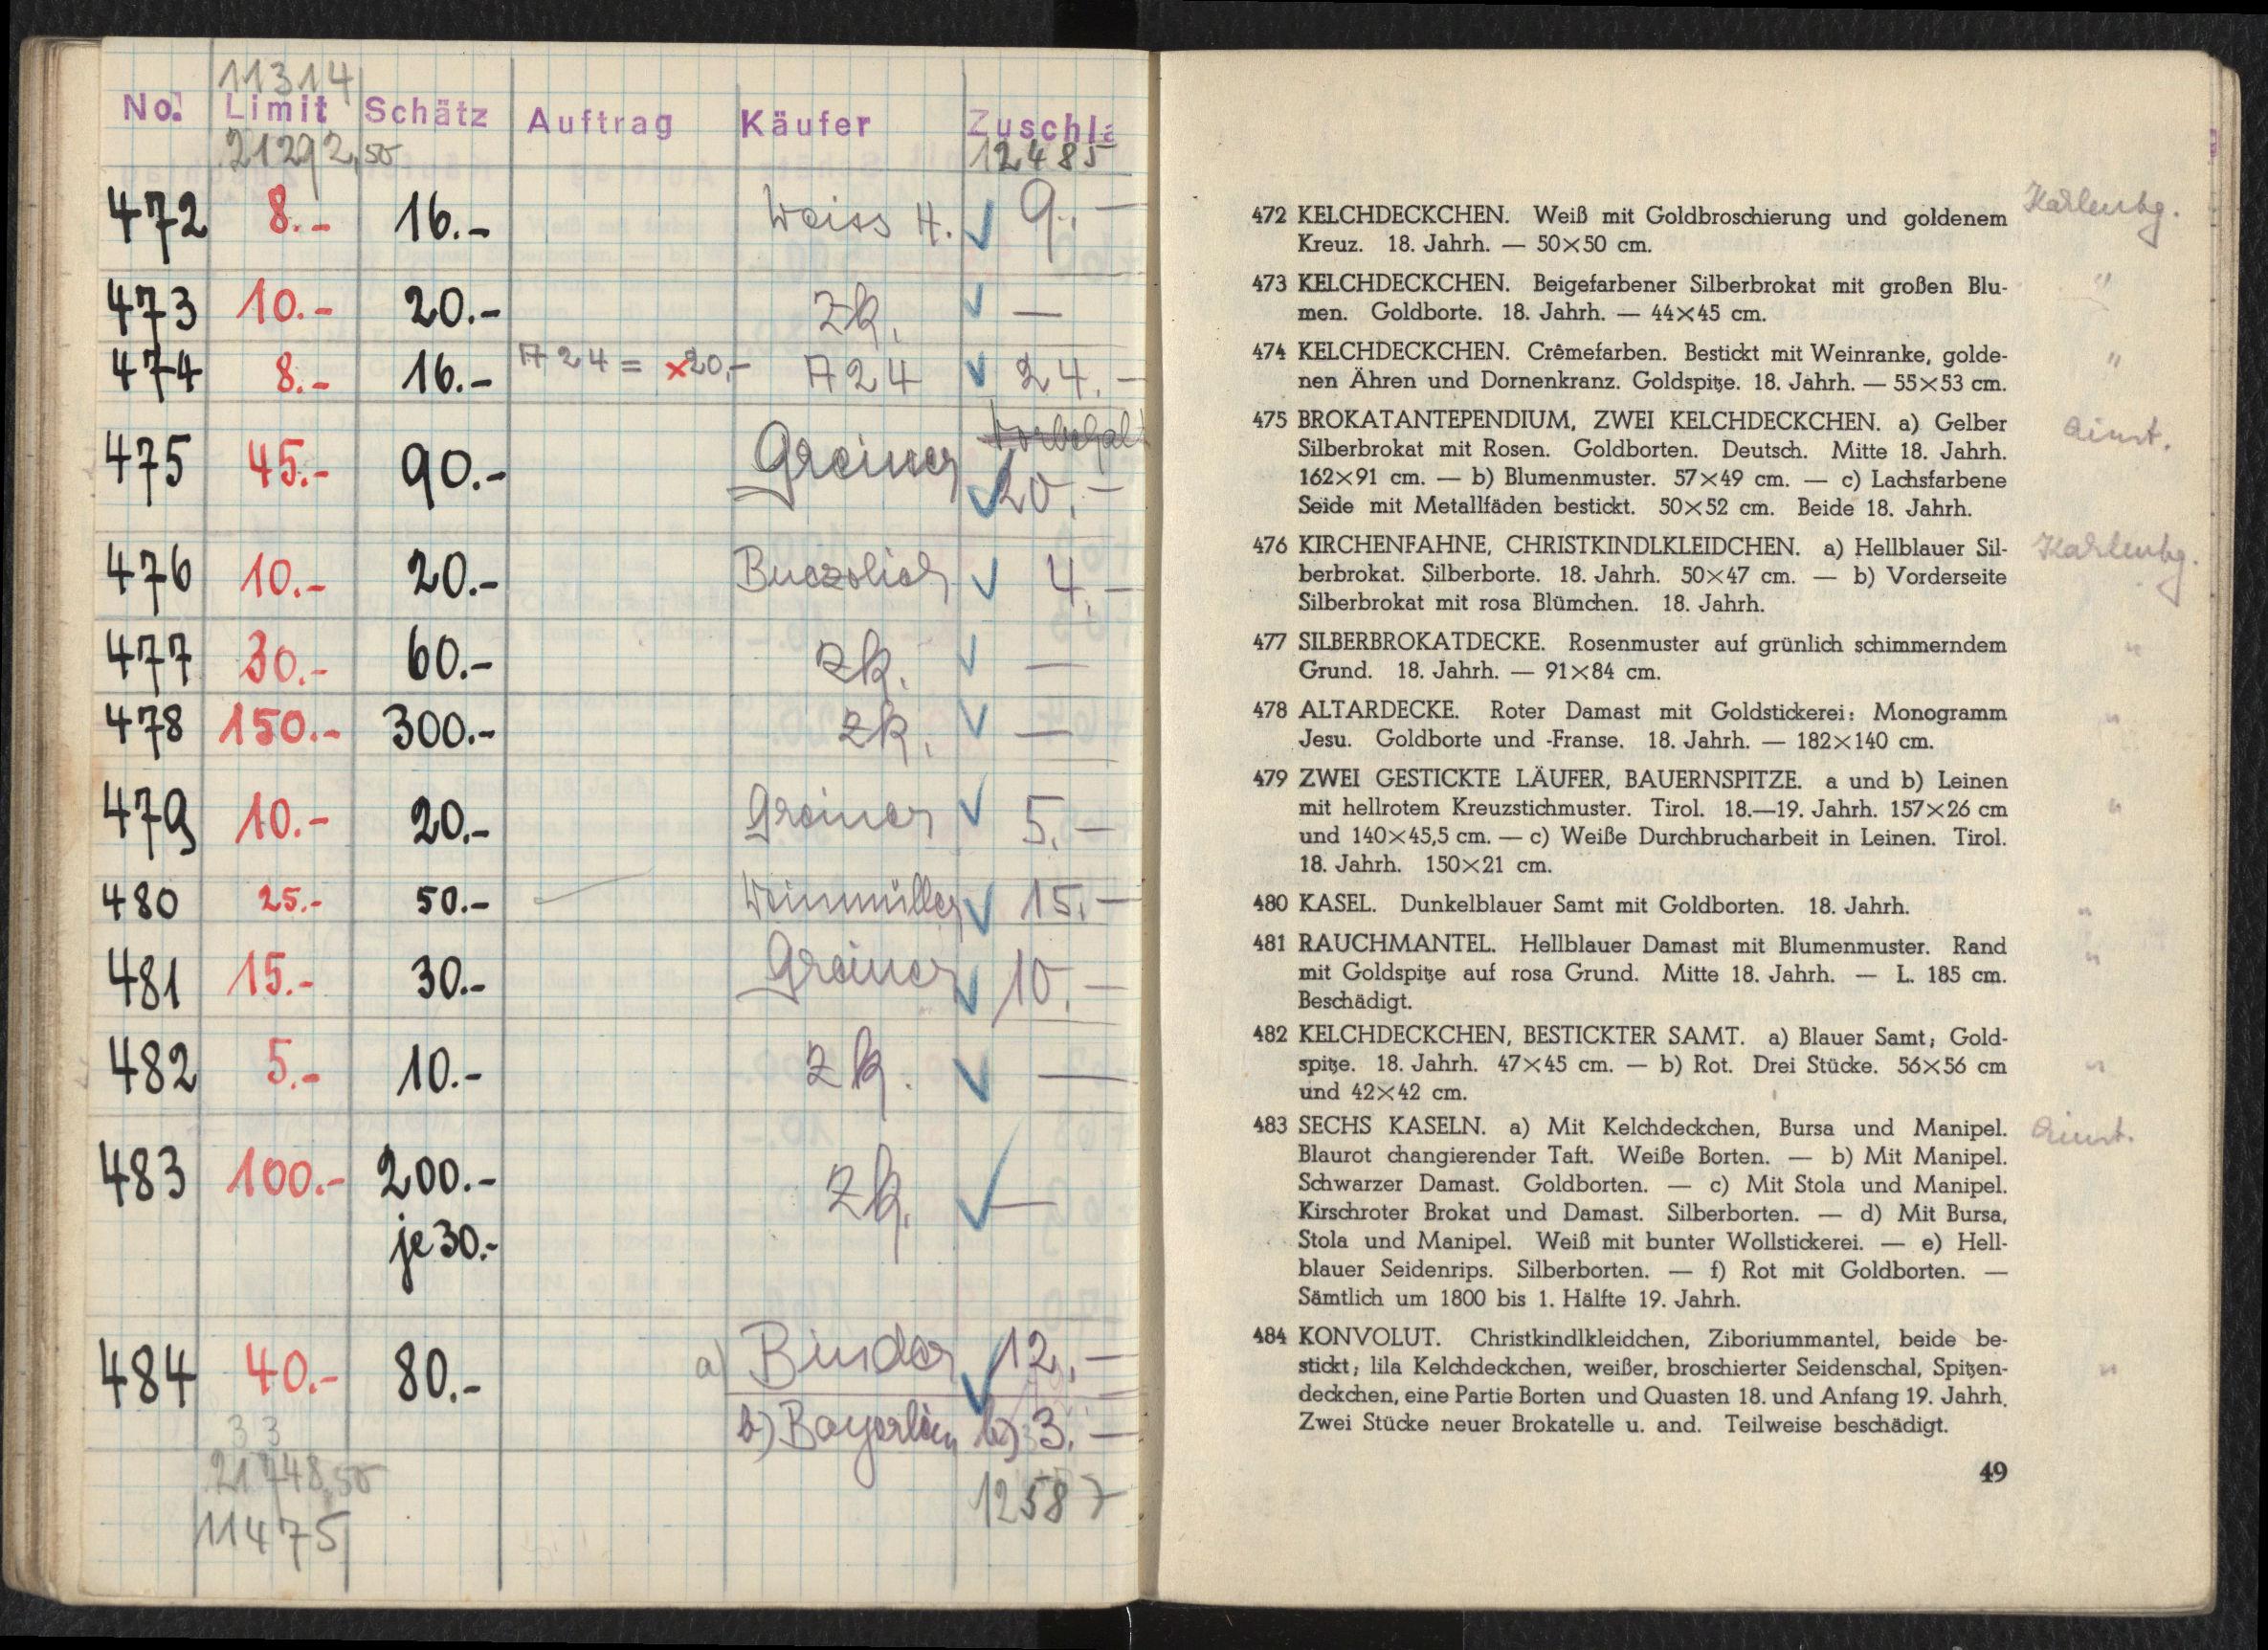 11314
No. Limit Schätz Auftrag Käufer Zuschla
21292,50 12485
472 8.- 16.- Weiss H. 9.-
473 10.- 20.- zk. —
474 8.- 16.- A 24 = x20,- A 24 24.-
475 45.- 90.- Greiner 20.-
476 10.- 20.- 4.-
477 30.- 60.- zk. —
478 150.- 300.- zk. —
479 10.- 20.- Greiner 5.-
480 25.- 50.- Weinmüller 15.-
481 15.- 30.- Greiner 10.-
482 5.- 10.- zk. —
483 100.- 200.- zk. —
je 30.-
484 40.- 80.- a) Binder 12.-
b) Bayerlein b) 3.-
33
21748,50
12587
11475
472 KELCHDECKCHEN. Weiß mit Goldbroschierung und goldenem
Kreuz. 18. Jahrh. — 50×50 cm.
473 KELCHDECKCHEN. Beigefarbener Silberbrokat mit großen Blu-
men. Goldborte. 18. Jahrh. — 44×45 cm.
"
474 KELCHDECKCHEN. Crêmefarben. Bestickt mit Weinranke, golde-
nen Ähren und Dornenkranz. Goldspitze. 18. Jahrh. — 55×53 cm.
"
475 BROKATANTEPENDIUM, ZWEI KELCHDECKCHEN. a) Gelber
Silberbrokat mit Rosen. Goldborten. Deutsch. Mitte 18. Jahrh.
162×91 cm. — b) Blumenmuster. 57×49 cm. — c) Lachsfarbene
Seide mit Metallfäden bestickt. 50×52 cm. Beide 18. Jahrh.
476 KIRCHENFAHNE, CHRISTKINDLKLEIDCHEN. a) Hellblauer Sil-
berbrokat. Silberborte. 18. Jahrh. 50×47 cm. — b) Vorderseite
Silberbrokat mit rosa Blümchen. 18. Jahrh.
477 SILBERBROKATDECKE. Rosenmuster auf grünlich schimmerndem
Grund. 18. Jahrh. — 91×84 cm.
"
478 ALTARDECKE. Roter Damast mit Goldstickerei: Monogramm
Jesu. Goldborte und -Franse. 18. Jahrh. — 182×140 cm.
"
479 ZWEI GESTICKTE LÄUFER, BAUERNSPITZE. a und b) Leinen
mit hellrotem Kreuzstichmuster. Tirol. 18.—19. Jahrh. 157×26 cm
und 140×45,5 cm. — c) Weiße Durchbrucharbeit in Leinen. Tirol.
18. Jahrh. 150×21 cm.
"
480 KASEL. Dunkelblauer Samt mit Goldborten. 18. Jahrh.
"
481 RAUCHMANTEL. Hellblauer Damast mit Blumenmuster. Rand
mit Goldspitze auf rosa Grund. Mitte 18. Jahrh. — L. 185 cm.
Beschädigt.
"
482 KELCHDECKCHEN, BESTICKTER SAMT. a) Blauer Samt; Gold-
spitze. 18. Jahrh. 47×45 cm. — b) Rot. Drei Stücke. 56×56 cm
und 42×42 cm.
"
483 SECHS KASELN. a) Mit Kelchdeckchen, Bursa und Manipel.
Blaurot changierender Taft. Weiße Borten. — b) Mit Manipel.
Schwarzer Damast. Goldborten. — c) Mit Stola und Manipel.
Kirschroter Brokat und Damast. Silberborten. — d) Mit Bursa,
Stola und Manipel. Weiß mit bunter Wollstickerei. — e) Hell-
blauer Seidenrips. Silberborten. — f) Rot mit Goldborten. —
Sämtlich um 1800 bis 1. Hälfte 19. Jahrh.
484 KONVOLUT. Christkindlkleidchen, Ziboriummantel, beide be-
stickt; lila Kelchdeckchen, weißer, broschierter Seidenschal, Spitzen-
deckchen, eine Partie Borten und Quasten 18. und Anfang 19. Jahrh.
Zwei Stücke neuer Brokatelle u. and. Teilweise beschädigt.
"
49